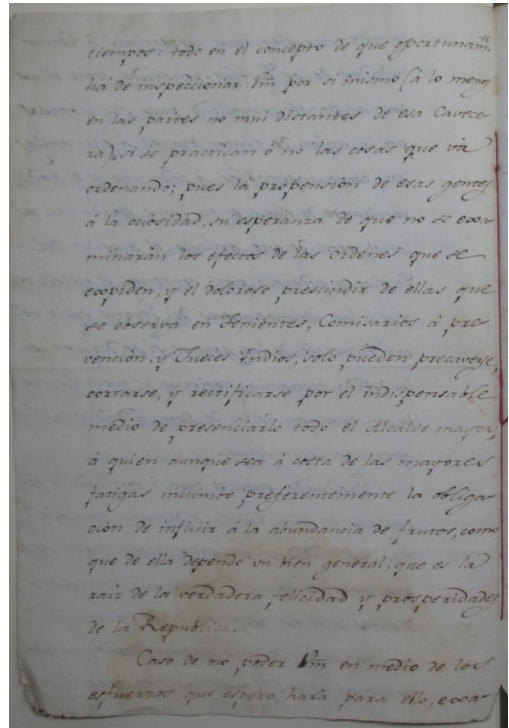 tiempos: todo en el concepto de que oportunam.te
ha de inspeccionar Vm por si mismo (à lo menos
en las partes no mui distantes de esa Cavece-
ra), si se practican ô no las cosas que và
ordenando; pues la propension de esas gentes
à la ociosidad, su esperanza de que no se exa-
minaràn los efectos de las ordenes que se
expiden, y el doloroso prescindir de ellas que
se observa en Tenientes, Comisarios à pre-
vencion, y Jueces Indios, solo pueden precaverse,
cortarse, y rectificarse por el indispensable
medio de presenciarlo todo el Alcalde mayor,
à quien aunque sea à costa de las mayores
fatigas incumbe preferentemente la obliga-
cion de influir à la abundancia de frutos, como
que de ella depende vn bien general, que es la
raiz de la verdadera felicidad y prosperidades
de la Republica.
Caso de no poder Vm en medio de los
esfuerzos que espero harà para ello, exa-